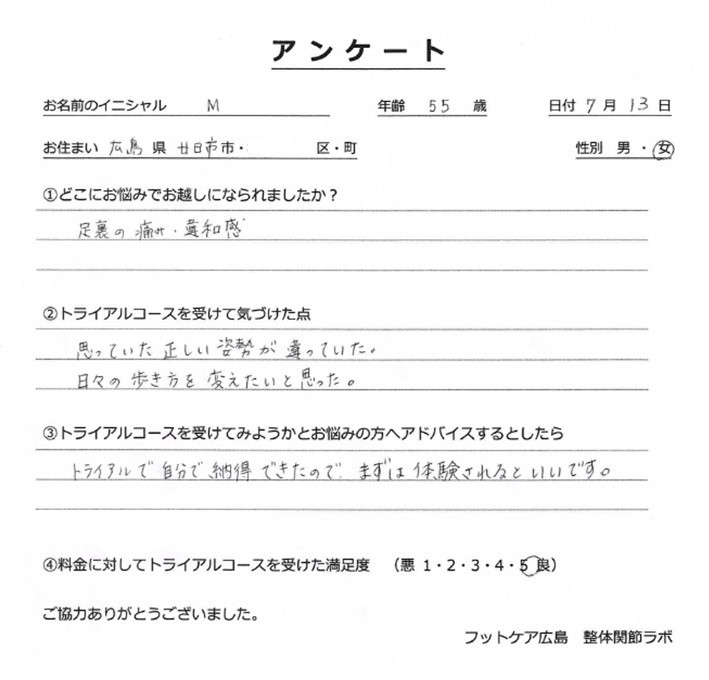 アンケート
お名前のイニシャル M 年齢 55 歳 日付 7 月 13 日
お住まい 広島 県 廿日市市・ 区・町 性別 男 ・ 女
①どこにお悩みでお越しになられましたか？
足裏の痛み・違和感
②トライアルコースを受けて気づけた点
思っていた正しい姿勢が違っていた。
日々の歩き方を変えたいと思った。
③トライアルコースを受けてみようかとお悩みの方へアドバイスするとしたら
トライアルで自分で納得できたので、まずは体験されるといいです。
④料金に対してトライアルコースを受けた満足度 （悪 1・2・3・4・5 良）
ご協力ありがとうございました。
フットケア広島 整体関節ラボ